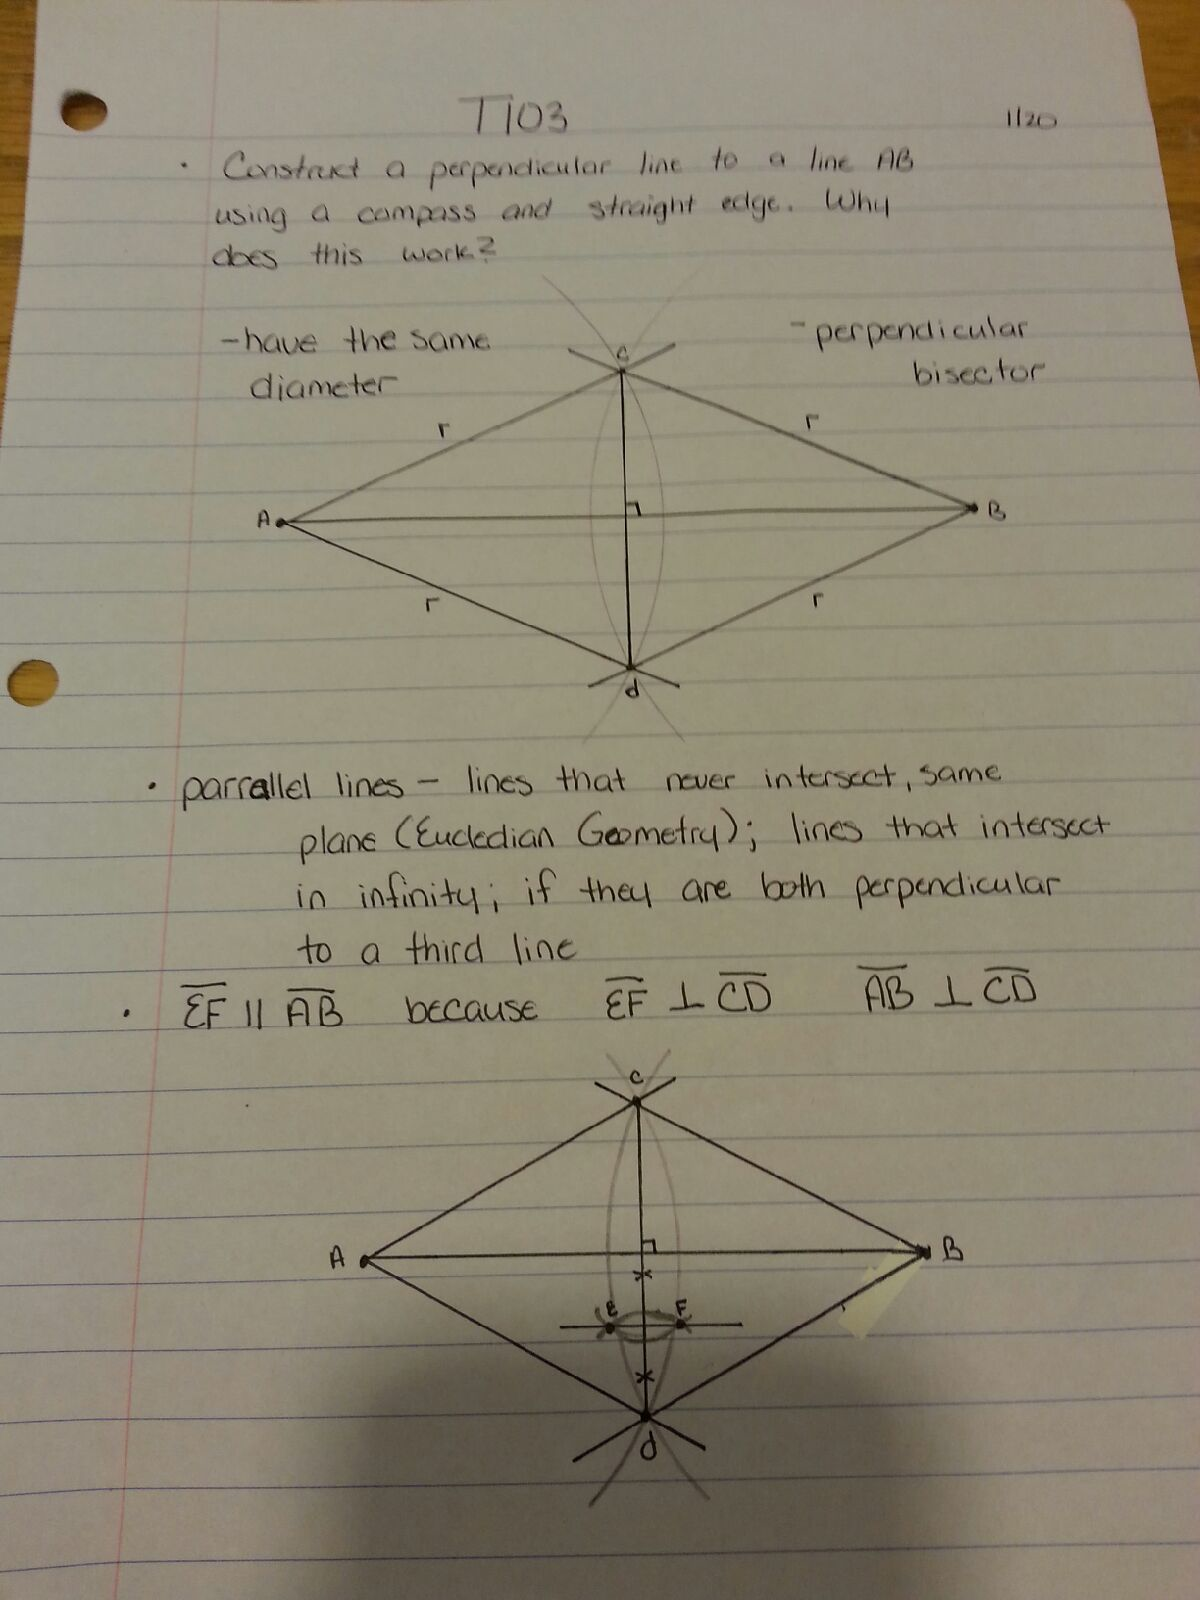 T103
1/20
• Construct a perpendicular line to a line AB
using a compass and straight edge. Why
does this work?
-have the same
diameter
- perpendicular
bisector
C
r
r
A
B
r
r
d
• parrallel lines - lines that never intersect, same
plane (Eucledian Geometry); lines that intersect
in infinity; if they are both perpendicular
to a third line
• E̅F̅ || A̅B̅ because E̅F̅ ⊥ C̅D̅ A̅B̅ ⊥ C̅D̅
C
A
B
E
F
d